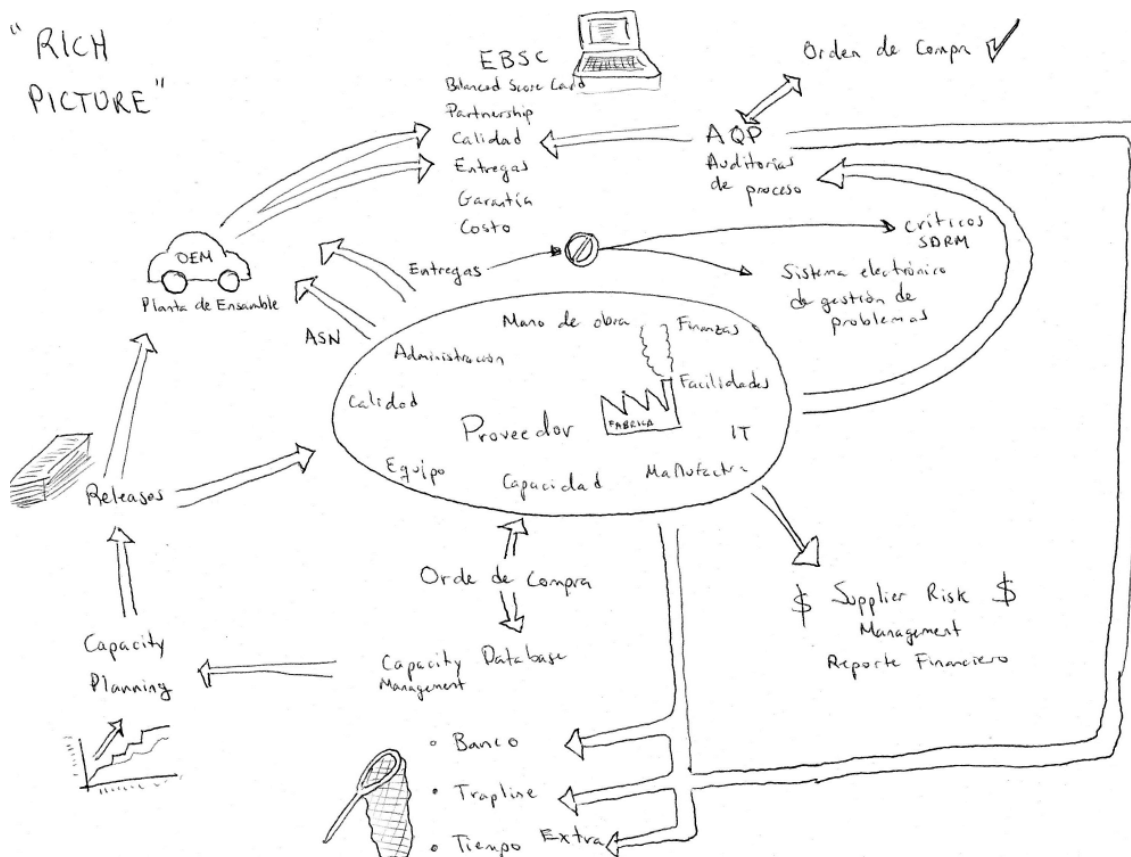 "RICH
PICTURE"
EBSC
Balanced Score Card
Partnership
Calidad
Entregas
Garantía
Costo
Orden de Compra
AQP
Auditorías
de proceso
Críticos
SDRM
Sistema electrónico
de gestión de
problemas
OEM
Planta de Ensamble
Entregas
ASN
Mano de obra
Finanzas
Administración
Facilidades
Calidad
Proveedor
FABRICA
IT
Equipo
Capacidad
Manufactura
Releases
Orde de Compra
$ Supplier Risk $
Management
Reporte Financiero
Capacity
Planning
Capacity Database
Management
• Banco
• Trapline
• Tiempo Extra